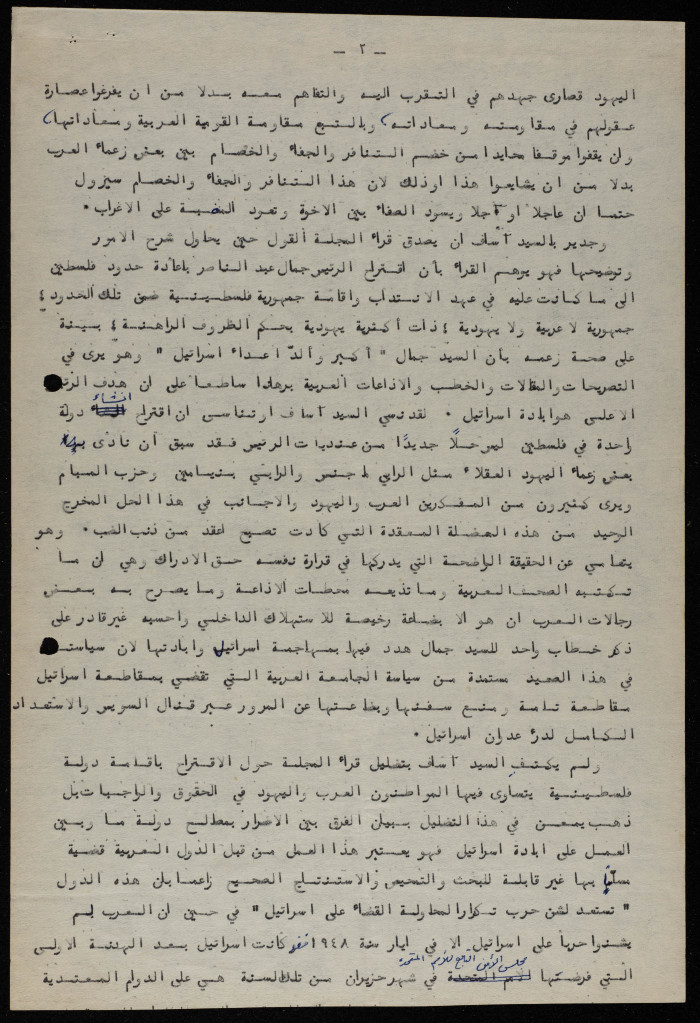 - ٢ -
اليهود قصارى جهدهم في التقرب اليه والتفاهم معه بدلا من ان يفرغوا عصارة
عقولهم في مقاومته ومعاداته، وبالتبع مقاومة القومية العربية ومعاداتها،
وان يقفوا موقفا محايدا من خضم التنافر والجفاء والخصام بين بعض زعماء العرب
بدلا من ان يشايعوا هذا او ذلك لان هذا التنافر والجفاء والخصام سيزول
حتما ان عاجلا او آجلا ويسود الصفاء بين الاخوة وتعود المغبة على الاغراب .
وجدير بالسيد آساف ان يصدق قراء المجلة القول حين يحاول شرح الامور
وتوضيحها فهو يوهم القراء بأن اقتراح الرئيس جمال عبد الناصر باعادة حدود فلسطين
الى ما كانت عليه في عهد الانتداب واقامة جمهورية فلسطينية ضمن تلك الحدود ؛
جمهورية لا عربية ولا يهودية ؛ ذات أكثرية يهودية بحكم الظروف الراهنة ؛ بينة
على صحة زعمه بأن السيد جمال " أكبر وألدّ اعداء اسرائيل " وهو يرى في
التصريحات والمقالات والخطب والاذاعات العربية برهانا ساطعا على ان هدف
الاعلى هو ابادة اسرائيل . لقد نسي السيد آساف او تناسى ان اقتراح انشاء دولة
واحدة في فلسطين ليس حلاً جديدًا من عنديات الرئيس فقد سبق أن نادى به
بعض زعماء اليهود العقلاء مثل الرابي ماجنس والرابي بنيامين وحزب المبام
ويرى كثيرون من المفكرين العرب واليهود والاجانب في هذا الحل المخرج
الوحيد من هذه المعضلة المعقدة التي كادت تصبح اعقد من ذنب الضب . وهو
يتعامى عن الحقيقة الواضحة التي يدركها في قرارة نفسه حق الادراك وهي ان ما
تكتبه الصحف العربية وما تذيعه محطات الاذاعة وما يصرح به بعض
رجالات العرب ان هو الا بضاعة رخيصة للاستهلاك الداخلي واحسبه غير قادر على
ذكر خطاب واحد للسيد جمال هدد فيها بمهاجمة اسرائيل وابادتها لان
في هذا الصعيد مستمدة من سياسة الجامعة العربية التي تقضي بمقاطعة اسرائيل
مقاطعة تامة ومنع سفنها وبضاعتها عن المرور عبر قنال السويس والاستعداد
الكامل لدرء عدوان اسرائيل .
ولم يكتفِ السيد آساف بتضليل قراء المجلة حول الاقتراح باقامة دولة
فلسطينية يتساوى فيها المواطنون العرب واليهود في الحقوق والواجبات بل
ذهب يمعن في هذا التضليل ببيان الفرق بين الاضرار بمصالح دولة ما وبين
العمل على ابادة اسرائيل فهو يعتبر هذا العمل من قبل الدول العربية قضية
مسلّمًا بها غير قابلة للبحث والتمحيص والاستنتاج الصحيح زاعما بان هذه الدول
" تستعد لشن حرب تكرارا لمحاولة القضاء على اسرائيل " في حين ان العرب لم
يشنوا حربا على اسرائيل الا في ايار سنة ١٩٤٨ كانت اسرائيل بعد الهدنة الاولى
التي فرضتها مجلس الأمن التابع للأمم المتحدة في شهر حزيران من تلك السنة هي على الدوام المعتدية